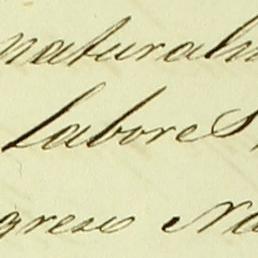 naturali
labore S
gress Na